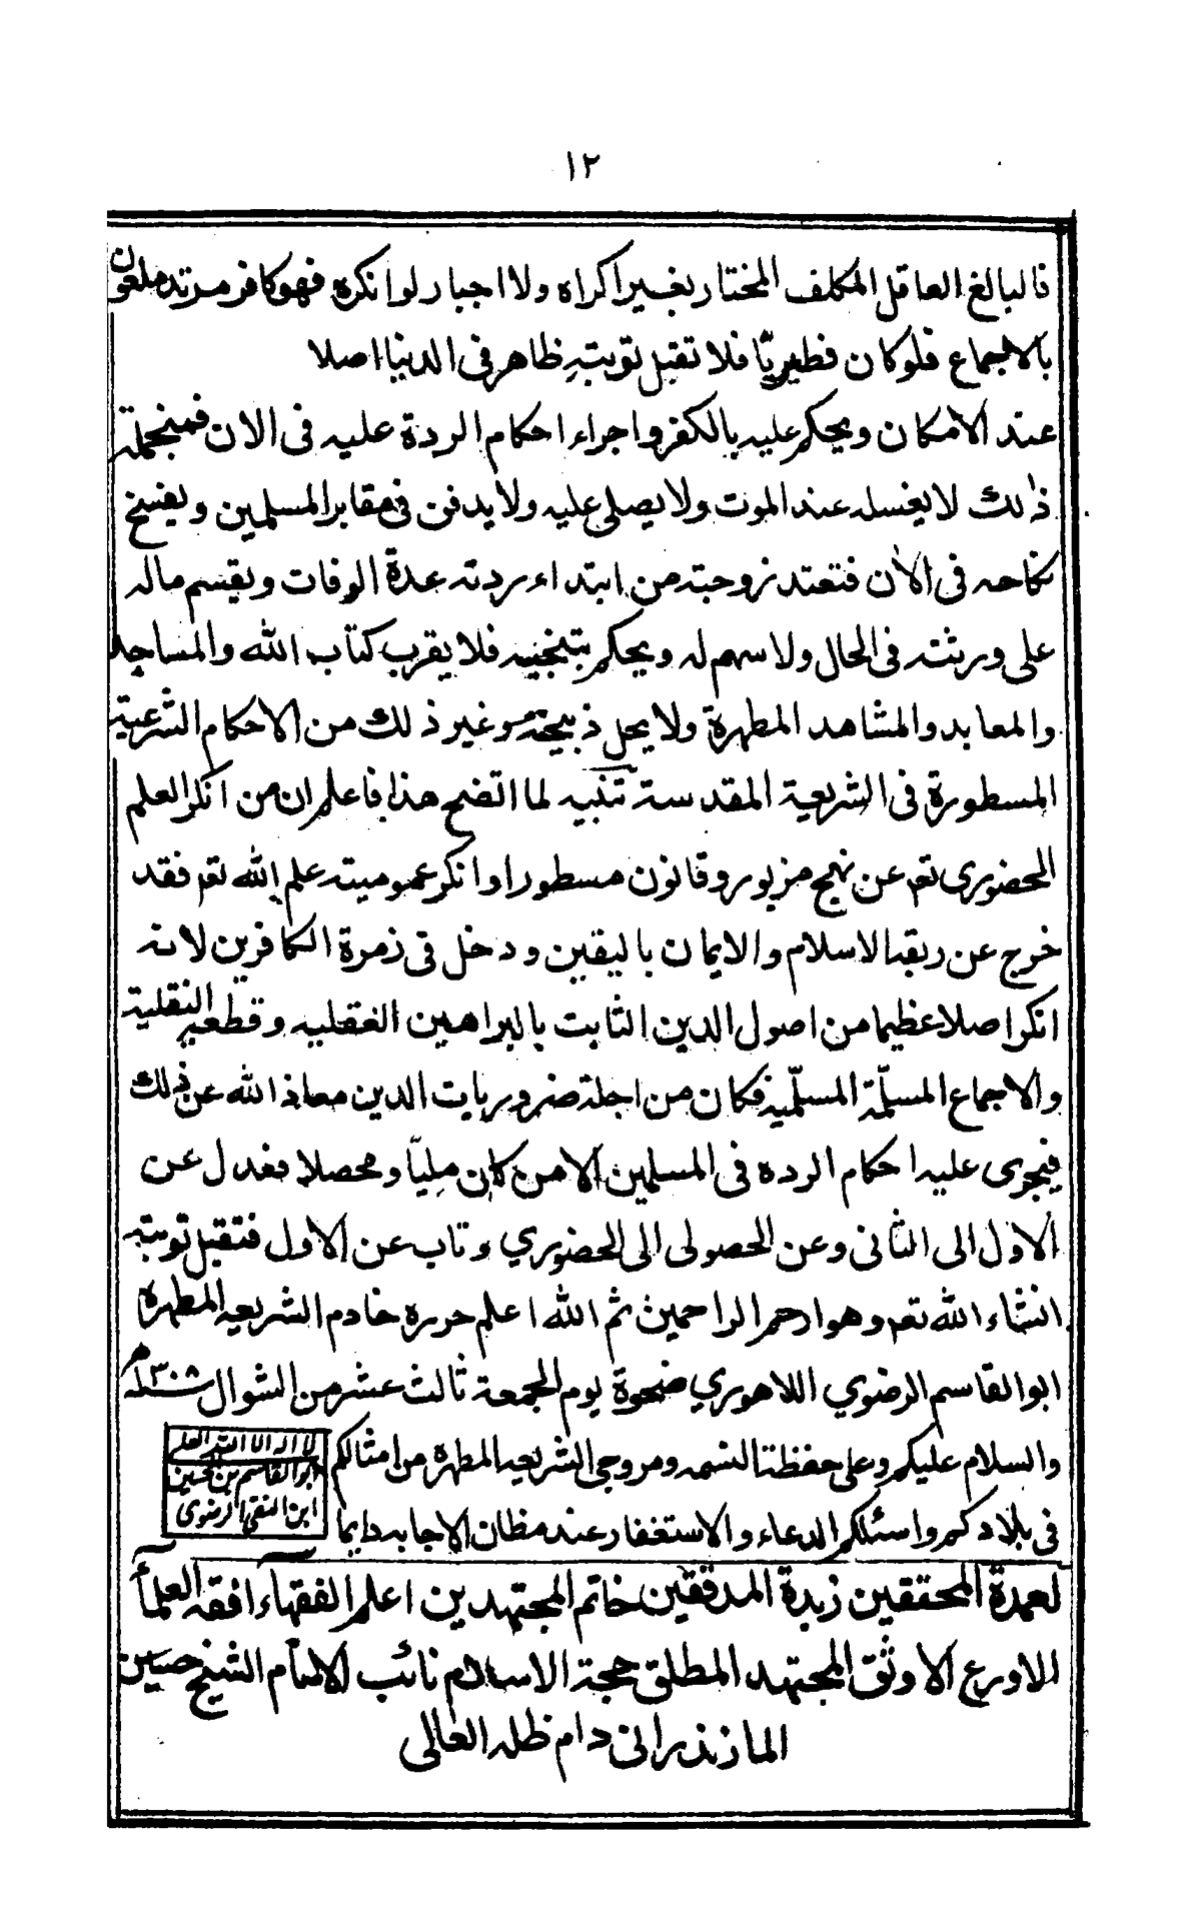 ١٢
فالبالغ العاقل المكلف المختار بغير اكراه ولا اجبار لو انكره فهو كافر مرتد ملعون
بالاجماع فلو كان فطيريّا فلا تقبل توبته ظاهر فى الدنيا اصلا
عند الامكان ويحكم عليه بالكفر واجراء احكام الردة عليه فى الان فمنجملة
ذالك لا يغسله عند الموت ولا يصلى عليه ولا يدفن فى مقابر المسلمين ويفسخ
نكاحه فى الان فتعتد زوجته من ابتداء ردته عدة الوفات ويقسم ماله
على ورثته فى الحال ولا سهم له ويحكم بتنجيسه فلا يقرب كتاب الله والمساجد
والمعابد والمشاهد المطهرة ولا يحل ذبيحته وغير ذلك من الاحكام الشرعية
المسطورة فى الشريعة المقدسة تنبيه لما اتضح هذا فاعلم ان من انكر العلم
الحضورى تعم عن نهج مزبور وقانون مسطور او انكر عموميته علم الله تعم فقد
خرج عن ربقة الاسلام والايمان باليقين ودخل فى زمرة الكافرين لانه
انكر اصلا عظيما من اصول الدين الثابت بالبراهين العقليه وقطعيه النقلية
والاجماع المسلّمة المسلّميه فكان من اجلة ضروريات الدين معاذ الله عن ذلك
فيجرى عليه احكام الرده فى المسلمين الا من كان مليّا ومحصلا فعدل عن
الاول الى الثانى وعن الحصولى الى الحضوري وتاب عن الاول فتقبل توبته
انشاء الله تعم وهو ارحم الراحمين ثم الله اعلم حرره خادم الشريعه المطهرة
ابو القاسم الرضوي اللاهوري ضحوة يوم الجمعة ثالث عشر من الشوال سنه ٣٠٨ هـ
والسلام عليكم وعلى حفظتا الشمه ومروجى الشريعه المطهره من امثالكم
فى بلادكم واسئلكم الدعاء والاستغفار عند مظان الاجابه دايما
لا اله الا الله العلى
ابو القاسم بن الحسين
ابن النقى الرضوى
لعمدة المحققين زبدة المدققين خاتم المجتهدين اعلم الفقهاء افقه العلمآ
الاورع الاوثق المجتهد المطلق حجة الاسلام نائب الامام الشيخ حسين
المازندرانى دام ظله العالى